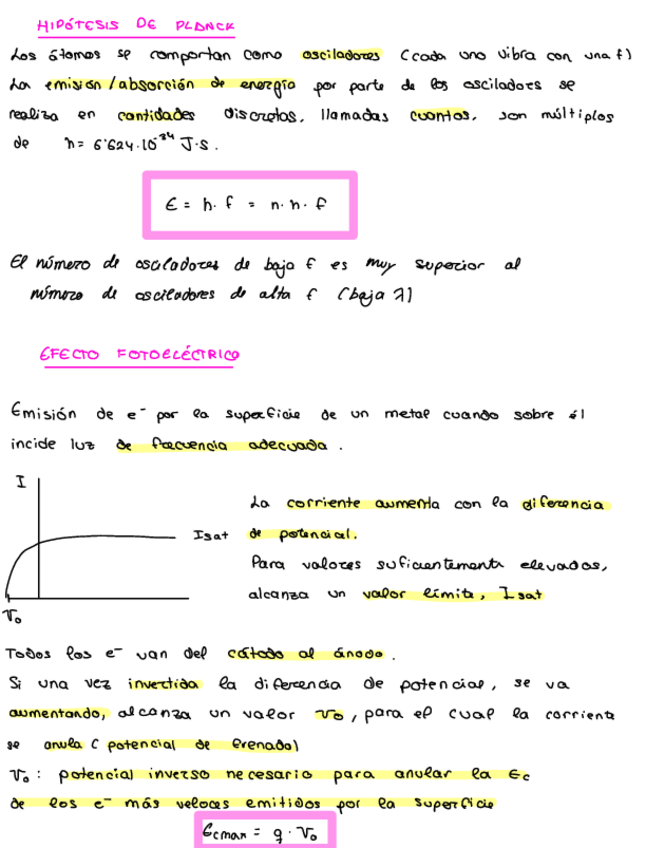 HIPÓTESIS DE PLANCK
Los átomos se comportan como osciladores (cada uno vibra con una f)
La emisión/absorción de energía por parte de los osciladores se
realiza en cantidades discretas, llamadas cuantos, son múltiplos
de h = 6'624·10⁻³⁴ J·s.
E = h·f = n·h·f
El número de osciladores de baja f es muy superior al
número de osciladores de alta f (baja λ)
EFECTO FOTOELÉCTRICO
Emisión de e⁻ por la superficie de un metal cuando sobre él
incide luz de frecuencia adecuada.
I
La corriente aumenta con la diferencia
Isat de potencial.
Para valores suficientemente elevados,
alcanza un valor límite, Isat
V₀
Todos los e⁻ van del cátodo al ánodo.
Si una vez invertida la diferencia de potencial, se va
aumentando, alcanza un valor V₀, para el cual la corriente
se anula (potencial de frenado)
V₀: potencial inverso necesario para anular la Ec
de los e⁻ más veloces emitidos por la superficie
Ecmax = q·V₀